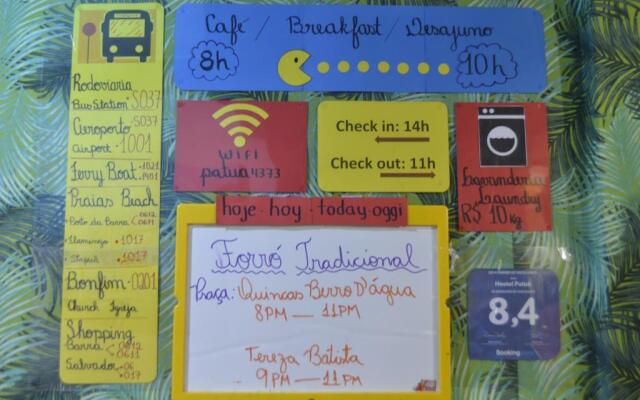 Rodoviaria
Bus Station S037
Aeroporto S037
Airport 1001
Ferry Boat
Praias Beach
Porto da Barra
Flamengo 1017
1017
Bonfim 0201
Church Igreja
Shopping
Barra 0612
0611
Salvador
Café / Breakfast / Desayuno
8h
10h
WIFI
patua4373
Check in: 14h
Check out: 11h
Lavanderia
Laundry
R$ 10 kg
hoje - hoy - today - oggi
Forró Tradicional
Praça: Quincas Berro D'água
8PM — 11PM
Tereza Batista
9PM — 11PM
Hostel Patuá
8,4
Booking